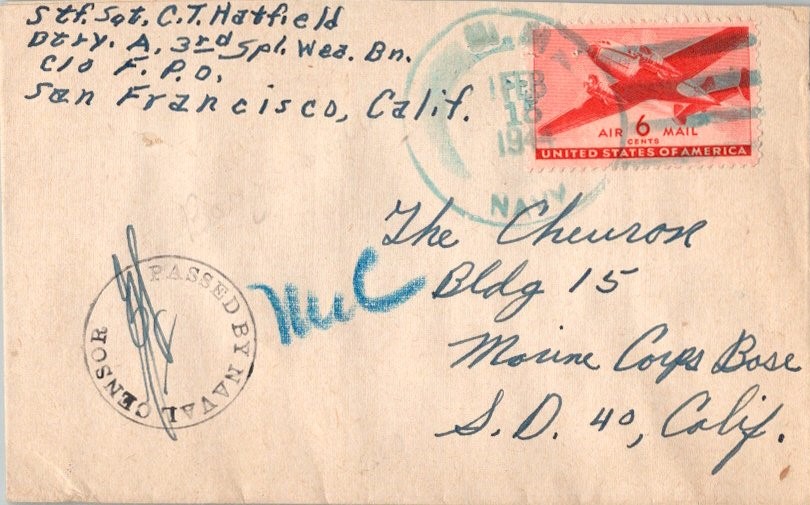 Stf. Sgt. C. T. Hatfield
Btry. A. 3rd Spl. Wea. Bn.
C/O F. P. O.
San Francisco, Calif.
FEB
18
NAVY
AIR 6 MAIL
CENTS
UNITED STATES OF AMERICA
The Chevron
Bldg 15
Marine Corps Base
S. D. 40, Calif.
PASSED BY NAVAL CENSOR